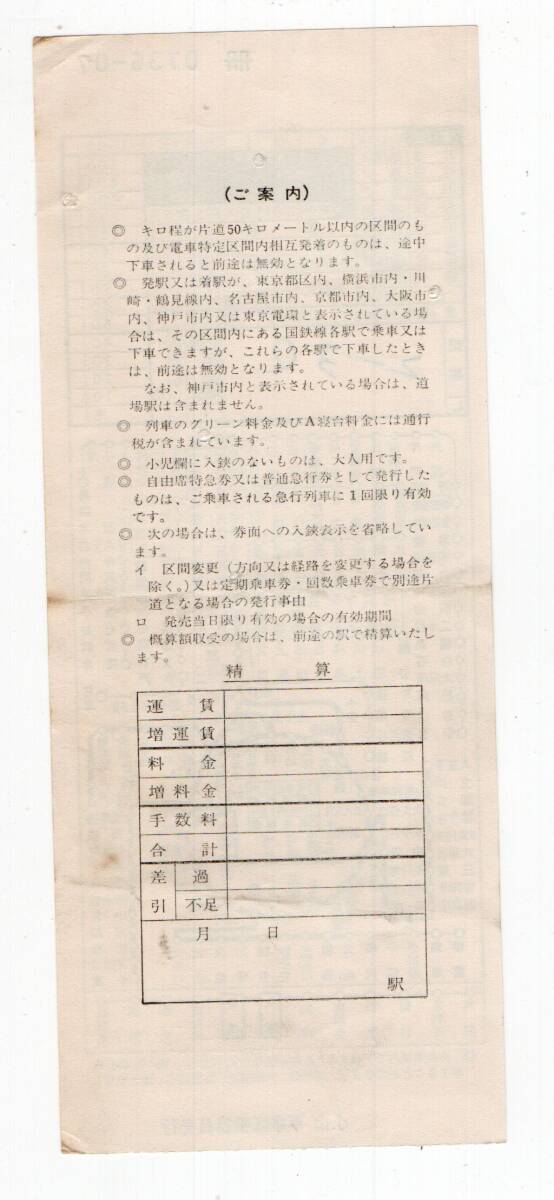 (ご案内)
◎ キロ程が片道50キロメートル以内の区間のも
の及び電車特定区間内相互発着のものは、途中
下車されると前途は無効となります。
◎ 発駅又は着駅が、東京都区内、横浜市内・川
崎・鶴見線内、名古屋市内、京都市内、大阪市
内、神戸市内又は東京電環と表示されている場
合は、その区間内にある国鉄線各駅で乗車又は
下車できますが、これらの各駅で下車したとき
は、前途は無効となります。
なお、神戸市内と表示されている場合は、道
場駅は含まれません。
◎ 列車のグリーン料金及びA寝台料金には通行
税が含まれています。
◎ 小児欄に入鋏のないものは、大人用です。
◎ 自由席特急券又は普通急行券として発行した
ものは、ご乗車される急行列車に1回限り有効
です。
◎ 次の場合は、券面への入鋏表示を省略してい
ます。
イ 区間変更(方向又は経路を変更する場合を
除く。)又は定期乗車券・回数乗車券で別途片
道となる場合の発行事由
ロ 発売当日限り有効の場合の有効期間
◎ 概算額収受の場合は、前途の駅で精算いたし
ます。
精算
運賃
増運賃
料金
増料金
手数料
合計
差引 過
不足
月 日
駅